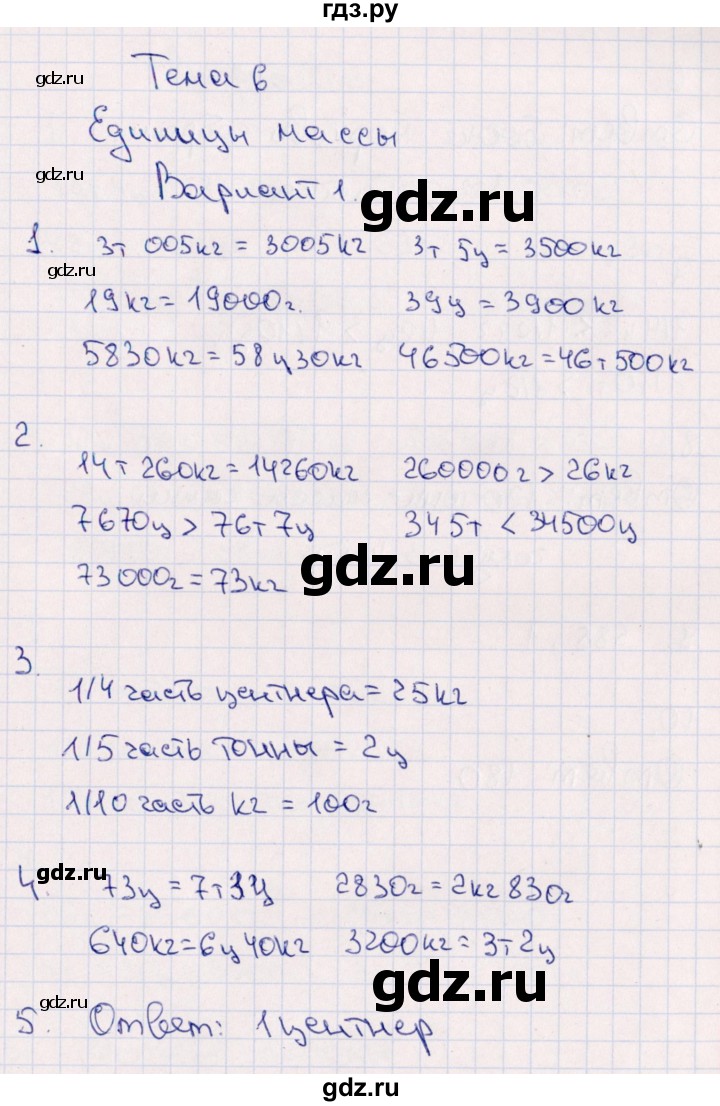 гдз.ру
gdz.ru
Тема 6
Единицы массы
gdz.ru
Вариант 1.
gdz.ru
1. 3т 005кг = 3005кг 3т 5ц = 3500кг
gdz.ru
19кг = 19000г. 39ц = 3900кг
5830кг = 58ц30кг 46500кг = 46т500кг
2.
14т 260кг = 14260кг 260000г > 26кг
7670ц > 76т 7ц 345т < 34500ц
gdz.ru
73000г = 73кг
3.
1/4 часть центнера = 25кг
1/5 часть тонны = 2ц
1/10 часть кг = 100г
gdz.ru
gdz.ru
4. 73ц = 7т3ц 2830г = 2кг 830г
640кг = 6ц40кг 3200кг = 3т2ц
gdz.ru
gdz.ru
5. Ответ: 1 центнер
gdz.ru